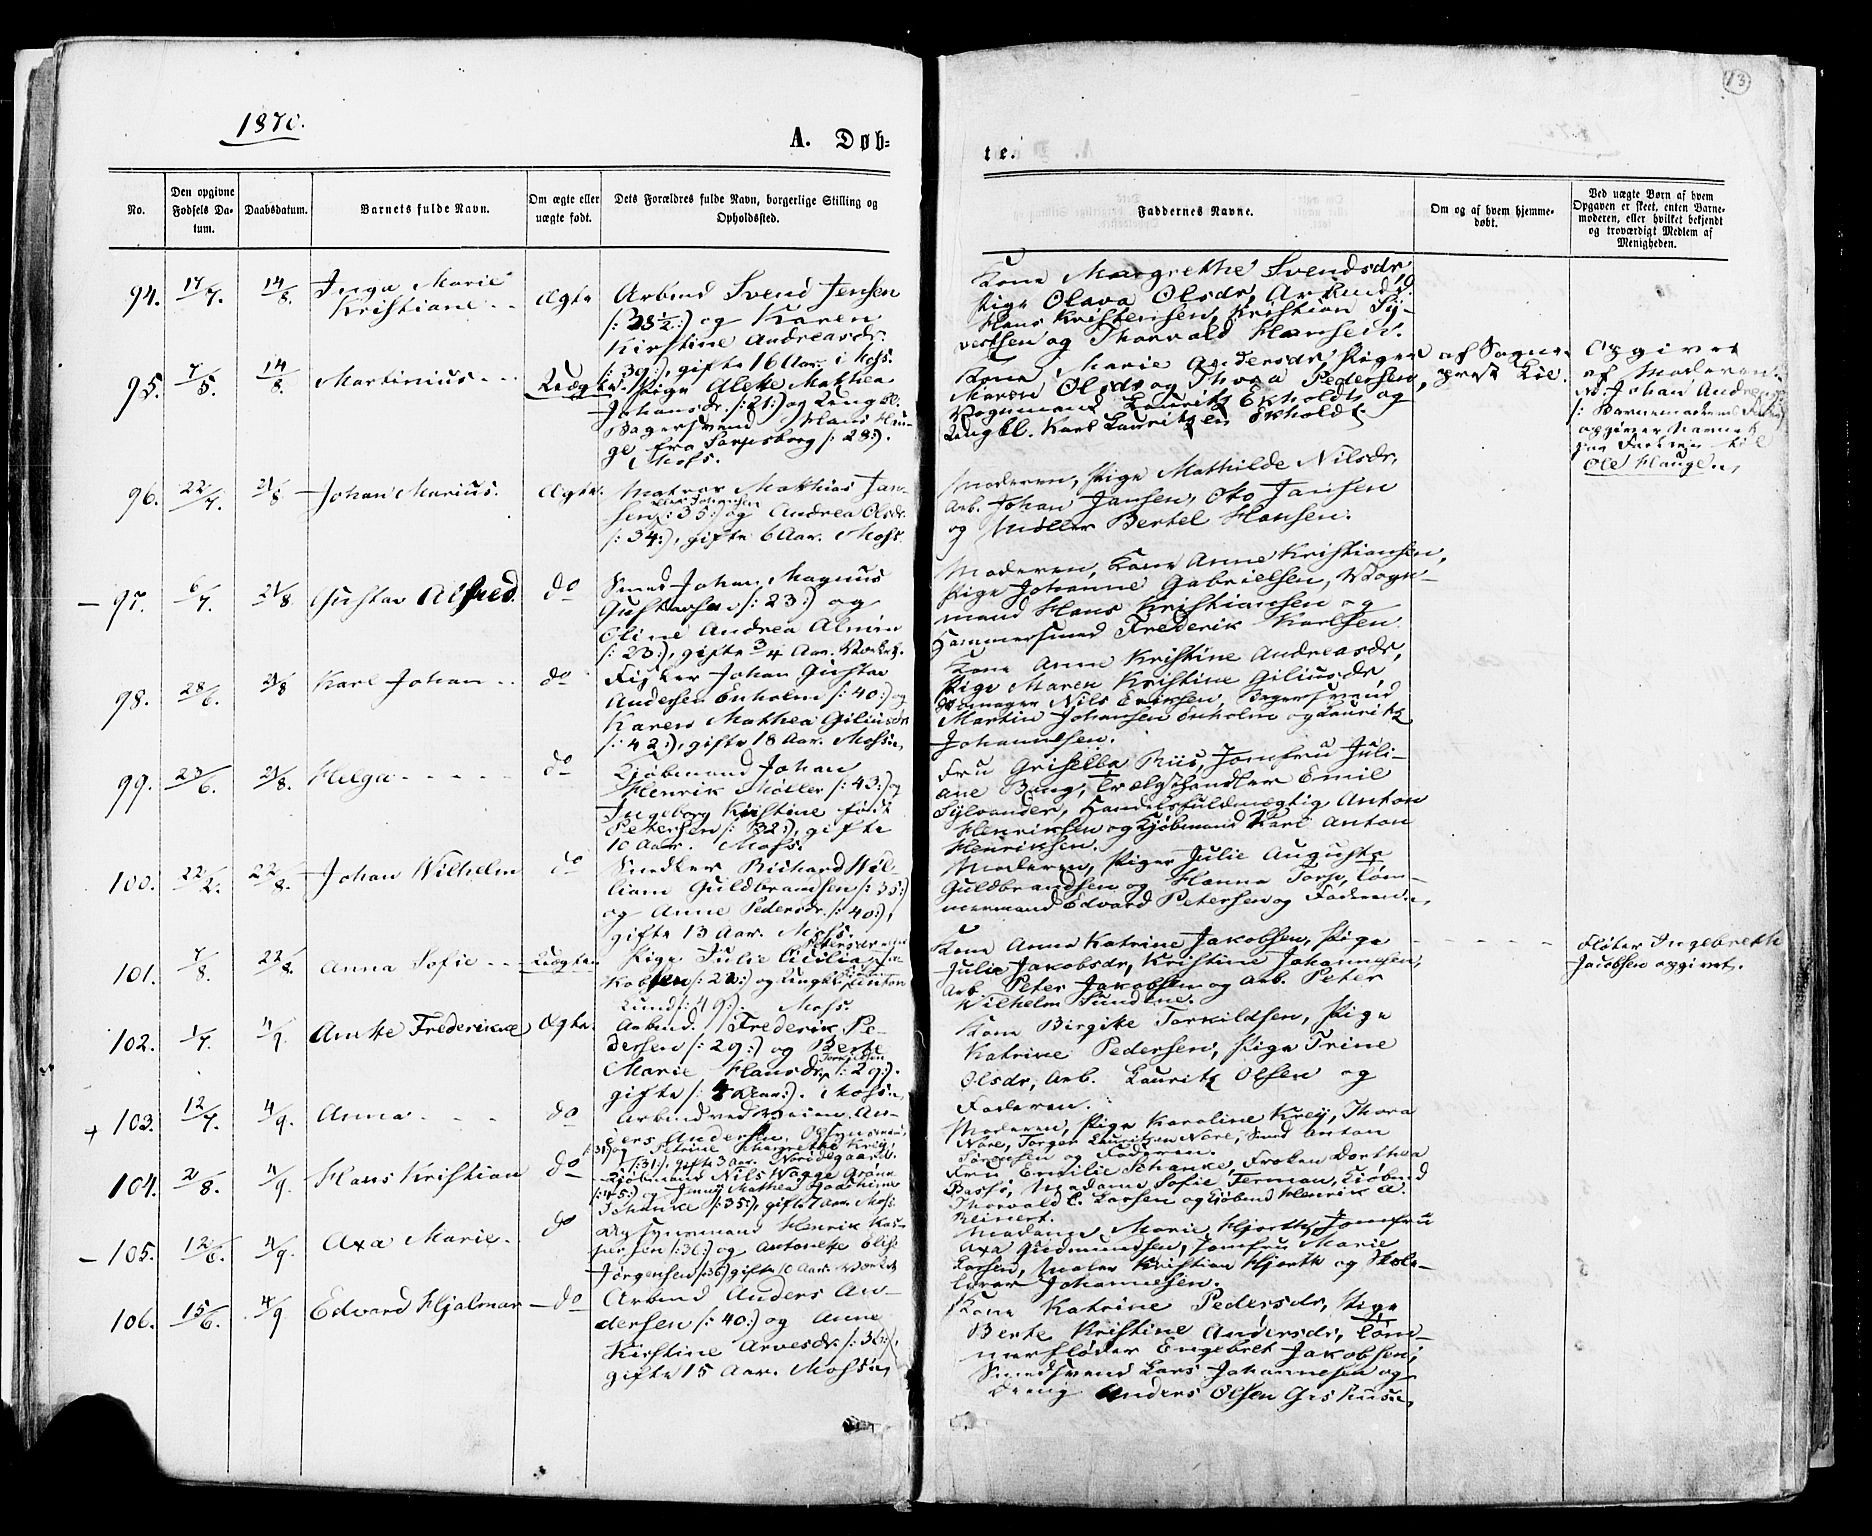 13
1870.
A. Døb-
te.
No.
Den opgivne Fødsels Da-tum.
Daabsdatum.
Barnets fulde Navn.
Om ægte eller uægte født.
Dets Forældres fulde Navn, borgerlige Stilling og Opholdssted.
Faddernes Navne.
Om og af hvem hjemme-døbt.
Ved uægte Børn af hvem Opgaven er skeet, enten Barne-moderen, eller hvilket bekjendt og troværdigt Medlem af Menigheden.
94. 17/7. 14/8. Inga Marie
Kristiane
Ægte
Arbmd Svend Jensen
/: 38½ :/ og Karen
Kirstine Andreasdr.
/: 39 :/, gifte 16 Aar. i Moss.
Kone Margrethe Svendsdr,
Pige Olava Olsdr, Arbmd
Hans Kristensen, Kristian Sy-
vertsen og Thorvald Hansen.
95. 7/5. 14/8. Martinius
Uægte.
Pige Alette Mathea
Johansdr. /: 21 :/ og Ungkl.
Bagersvend Hans Hau-
ge fra Sarpsborg /: 28 :/.
Moss.
Kone Marie Andersdr, Piger
Maren Olsdr og Thora Pedersen,
Vognmand Lauritz Ekholdt og
Ungkl. Karl Lauritzen Ekholdt.
af Sogne-
prest Lie.
Opgivet
af Moderen.
Johan Andre
/: Barnemoderens
opgiver Navnet
paa Faderen til
Ole Hauge.
96. 22/7. 21/8 Johan Marius.
Ægte.
Matros Mathias Jan-
sen /: 35 :/ og Andrea Olsdr.
/: 34 :/, gifte 6 Aar. Moss.
Moderen, Pige Mathilde Nilsdr,
Arb. Johan Jansen, Otto Jansen
og Møller Bertel Hansen.
97. 6/7. 21/8. Gustav Alfred.
do
Smed Johan Magnus
Gustavsen /: 23 :/ og
Oline Andrea Almin
/: 23 :/, gifte 3/4 Aar. Værket.
Moderen, Kone Anne Kristiansen,
Pige Johanne Gabrielsen, Vogn-
mand Hans Kristiansen og
Hammersmed Frederik Karlsen.
98. 28/6. 21/8 Karl Johan
do
Fisker Johan Gustav
Andersen Enholm /: 40 :/ og
Karen Mathea Giliusdr
/: 42 :/, gifte 18 Aar. Moss.
Kone Anne Kristine Andreasdr,
Pige Maren Kristine Giliusdr,
Nils Eriksen, Bagersvend
Martin Johansen Enholm og Lauritz
Johannesen.
99. 23/6. 21/8. Helga
do
Kjøbmand Johan
Henrik Møller /: 43 :/ og
Ingeborg Kristine født
Petersen /: 32 :/, gifte
10 Aar. Moss.
Fru Grisella Riis, Jomfru Juli-
ane Bing, Trælasthandler Emil
Sylvander, Handelsfuldmægtig Anton
Henriksen og Kjøbmand Karl Anton
Henriksen.
100. 22/2. 22/8. Johan Wilhelm
do
Snedker Richard Wil-
liam Guldbrandsen /: 35 :/
og Anne Pedersdr. /: 40 :/,
gifte 13 Aar. Moss.
Moderen, Piger Julie Augusta
Guldbrandsen og Hanna Torp, Tøm-
mermand Edvard Petersen og Faderen.
101. 7/8. 22/8. Anna Sofie
Uægte.
Pige Julie Cicilia Ja-
kobsen /: 22 :/ og Ungkl. Anton
Lund /: 49 :/. Moss.
Kone Anna Katrine Jakobsen, Pige
Julie Jakobsdr, Kristine Johannesen,
Arb. Peter Jakobsen og Arb. Peter
Wilhelm Sundine.
Fløter Ingebreth
Jacobsen opgivet.
102. 1/7. 4/9 Anette Frederikke
Ægte.
Arbmd. Frederik Pe-
dersen /: 29 :/ og Berte
Marie Hansdr. Torkildsen /: 29 :/.
gifte /: 4 Aar :/. Moss.
Kone Birgitte Torkildsen, Pige
Katrine Pedersen, Pige Trine
Olsdr, Arb. Lauritz Olsen og
Faderen.
+ 103. 12/7. 4/9. Anna
do
Arbmd ved Veien An-
ders Andersen
/: 31 :/ og Petrine Margrethe Krey,
/: 31 :/, gifte 3 Aar. Norødegaard.
Moderen, Pige Karoline Krey, Thora
Nore, Jørgen Lauritzen Nore, Smed Anton
Sørensen og Faderen.
104. 2/8. 4/9. Hans Kristian
do
Kjøbmand Nils Vogge Grønn
/: 45 :/ og Jenny Mathea Joachime
Schanke /: 35 :/, gifte 7 Aar. Moss.
Fru Emilie Schanke, Frøken Dorthea
Bassø, Madame Sofie Terman, Kjøbmd
Thorvald C. Larsen og Kjøbmd Henrik A.
Reinert.
– 105. 12/6. 4/9. Axa Marie.
do
Opsynsmand Henrik Kas-
persen /: 36 :/ og Antonette Elise
Jørgensen /: 36 :/ gifte 10 Aar. Værket
Madame Marie Hjorth, Jomfru
Axa Gudmundsen, Jomfru Marie
Larsen, Maler Kristian Hjorth og Skole-
lærer Johannesen.
106. 15/6. 4/9 Edvard Hjalmar
do
Arbmd Anders An-
dersen /: 40 :/ og Anne
Kirstine Arvesdr. /: 36 :/,
gifte 15 Aar. Moss.
Kone Katrine Pedersdr, Pige
Berte Kristine Andersdr, Tøm-
merfløder Engebret Jakobsen,
Smedsvend Lars Johannesen og
Dreng Anders Olsen